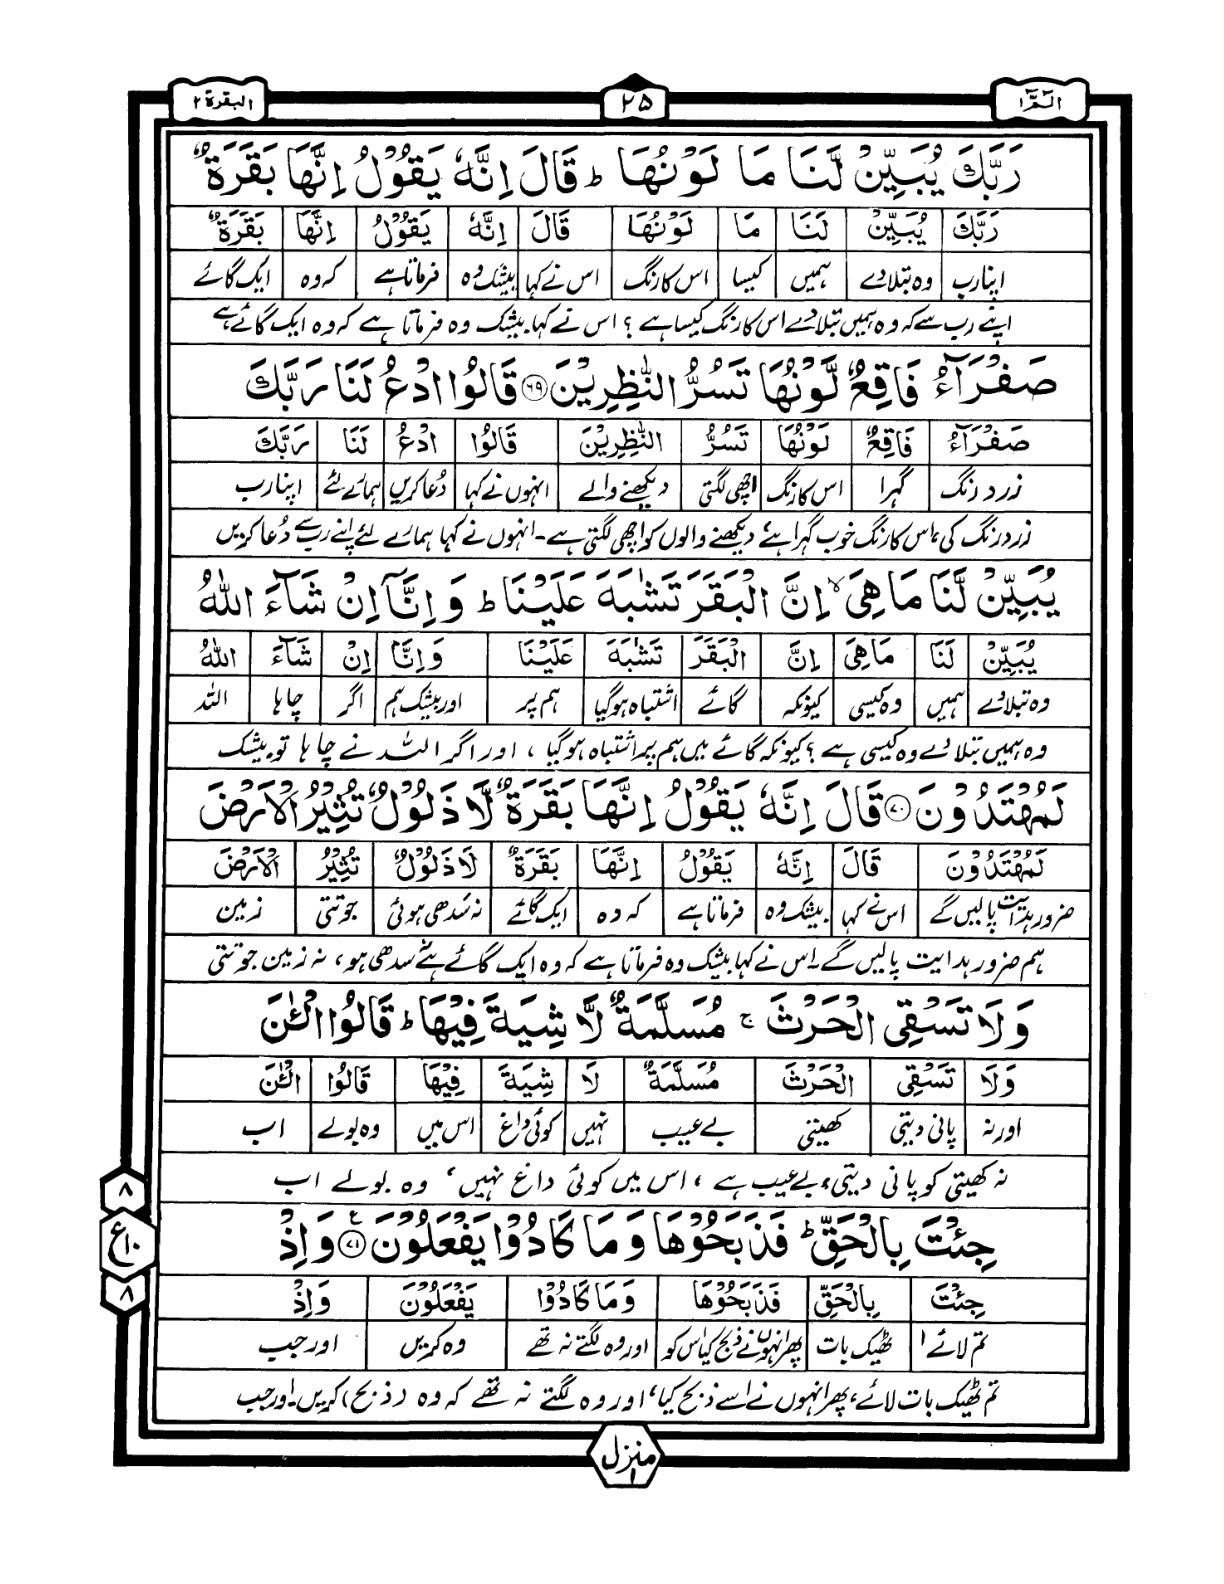 الٓمّٓ ١
٢٥
البقرة ٢
رَبَّكَ يُبَيِّنْ لَّنَا مَا لَوْنُهَا ؕ قَالَ اِنَّهٗ يَقُوْلُ اِنَّهَا بَقَرَةٌ
رَبَّكَ يُبَيِّنْ لَنَا مَا لَوْنُهَا قَالَ اِنَّهٗ يَقُوْلُ اِنَّهَا بَقَرَةٌ
اپنا رب وہ بتلادے ہمیں کیسا اس کا رنگ اس نے کہا بیشک وہ فرماتا ہے کہ وہ ایک گائے
اپنے رب سے کہ وہ ہمیں بتلادے اس کا رنگ کیسا ہے ؟ اس نے کہا۔ بیشک وہ فرماتا ہے کہ وہ ایک گائے ہے
صَفْرَآءُ فَاقِعٌ لَّوْنُهَا تَسُرُّ النّٰظِرِيْنَ ۶۹ قَالُوا ادْعُ لَنَا رَبَّكَ
صَفْرَآءُ فَاقِعٌ لَوْنُهَا تَسُرُّ النّٰظِرِيْنَ قَالُوا ادْعُ لَنَا رَبَّكَ
زرد رنگ گہرا اس کا رنگ اچھی لگتی دیکھنے والے انہوں نے کہا دُعا کریں ہمارے لئے اپنا رب
زرد رنگ کی، اس کا رنگ خوب گہرا ہے، دیکھنے والوں کو اچھی لگتی ہے۔ انہوں نے کہا ہمارے لئے اپنے رب سے دُعا کریں
يُبَيِّنْ لَّنَا مَا هِىَ ۙ اِنَّ الْبَقَرَ تَشٰبَهَ عَلَيْنَا ؕ وَ اِنَّآ اِنْ شَآءَ اللّٰهُ
يُبَيِّنْ لَنَا مَا هِىَ اِنَّ الْبَقَرَ تَشٰبَهَ عَلَيْنَا وَاِنَّا اِنْ شَآءَ اللّٰهُ
وہ بتلادے ہمیں وہ کیسی کیونکہ گائے اشتباہ ہوگیا ہم پر اور بیشک ہم اگر چاہا اللہ
وہ ہمیں بتلادے وہ کیسی ہے ؟ کیونکہ گائے میں ہم پر اشتباہ ہوگیا ، اور اگر اللہ نے چاہا تو بیشک
لَمُهْتَدُوْنَ ۷۰ قَالَ اِنَّهٗ يَقُوْلُ اِنَّهَا بَقَرَةٌ لَّا ذَلُوْلٌ تُثِيْرُ الْاَرْضَ
لَمُهْتَدُوْنَ قَالَ اِنَّهٗ يَقُوْلُ اِنَّهَا بَقَرَةٌ لَا ذَلُوْلٌ تُثِيْرُ الْاَرْضَ
ضرور ہدایت پالیں گے اس نے کہا بیشک وہ فرماتا ہے کہ وہ ایک گائے نہ سدھی ہوئی جوتتی زمین
ہم ضرور ہدایت پالیں گے۔ اس نے کہا بیشک وہ فرماتا ہے کہ وہ ایک گائے ہے نہ سدھی ہو، نہ زمین جوتتی
وَلَا تَسْقِى الْحَرْثَ ۚ مُسَلَّمَةٌ لَّا شِيَةَ فِيْهَا ؕ قَالُوا الْـٰٔنَ
وَلَا تَسْقِى الْحَرْثَ مُسَلَّمَةٌ لَا شِيَةَ فِيْهَا قَالُوا الْـٰٔنَ
اور نہ پانی دیتی کھیتی بے عیب نہیں کوئی داغ اس میں وہ بولے اب
نہ کھیتی کو پانی دیتی، بے عیب ہے ، اس میں کوئی داغ نہیں، وہ بولے اب
جِئْتَ بِالْحَقِّ ؕ فَذَبَحُوْهَا وَ مَا كَادُوْا يَفْعَلُوْنَ ۷۱ ع وَ اِذْ
جِئْتَ بِالْحَقِّ فَذَبَحُوْهَا وَمَا كَادُوْا يَفْعَلُوْنَ وَ اِذْ
تم لائے ٹھیک بات پھر انہوں نے ذبح کیا اس کو اور وہ لگتے نہ تھے وہ کریں اور جب
تم ٹھیک بات لائے، پھر انہوں نے اسے ذبح کیا، اور وہ لگتے نہ تھے کہ وہ (ذبح) کریں۔ اور جب
۸
ع ۱۰
۸
منزل ۱